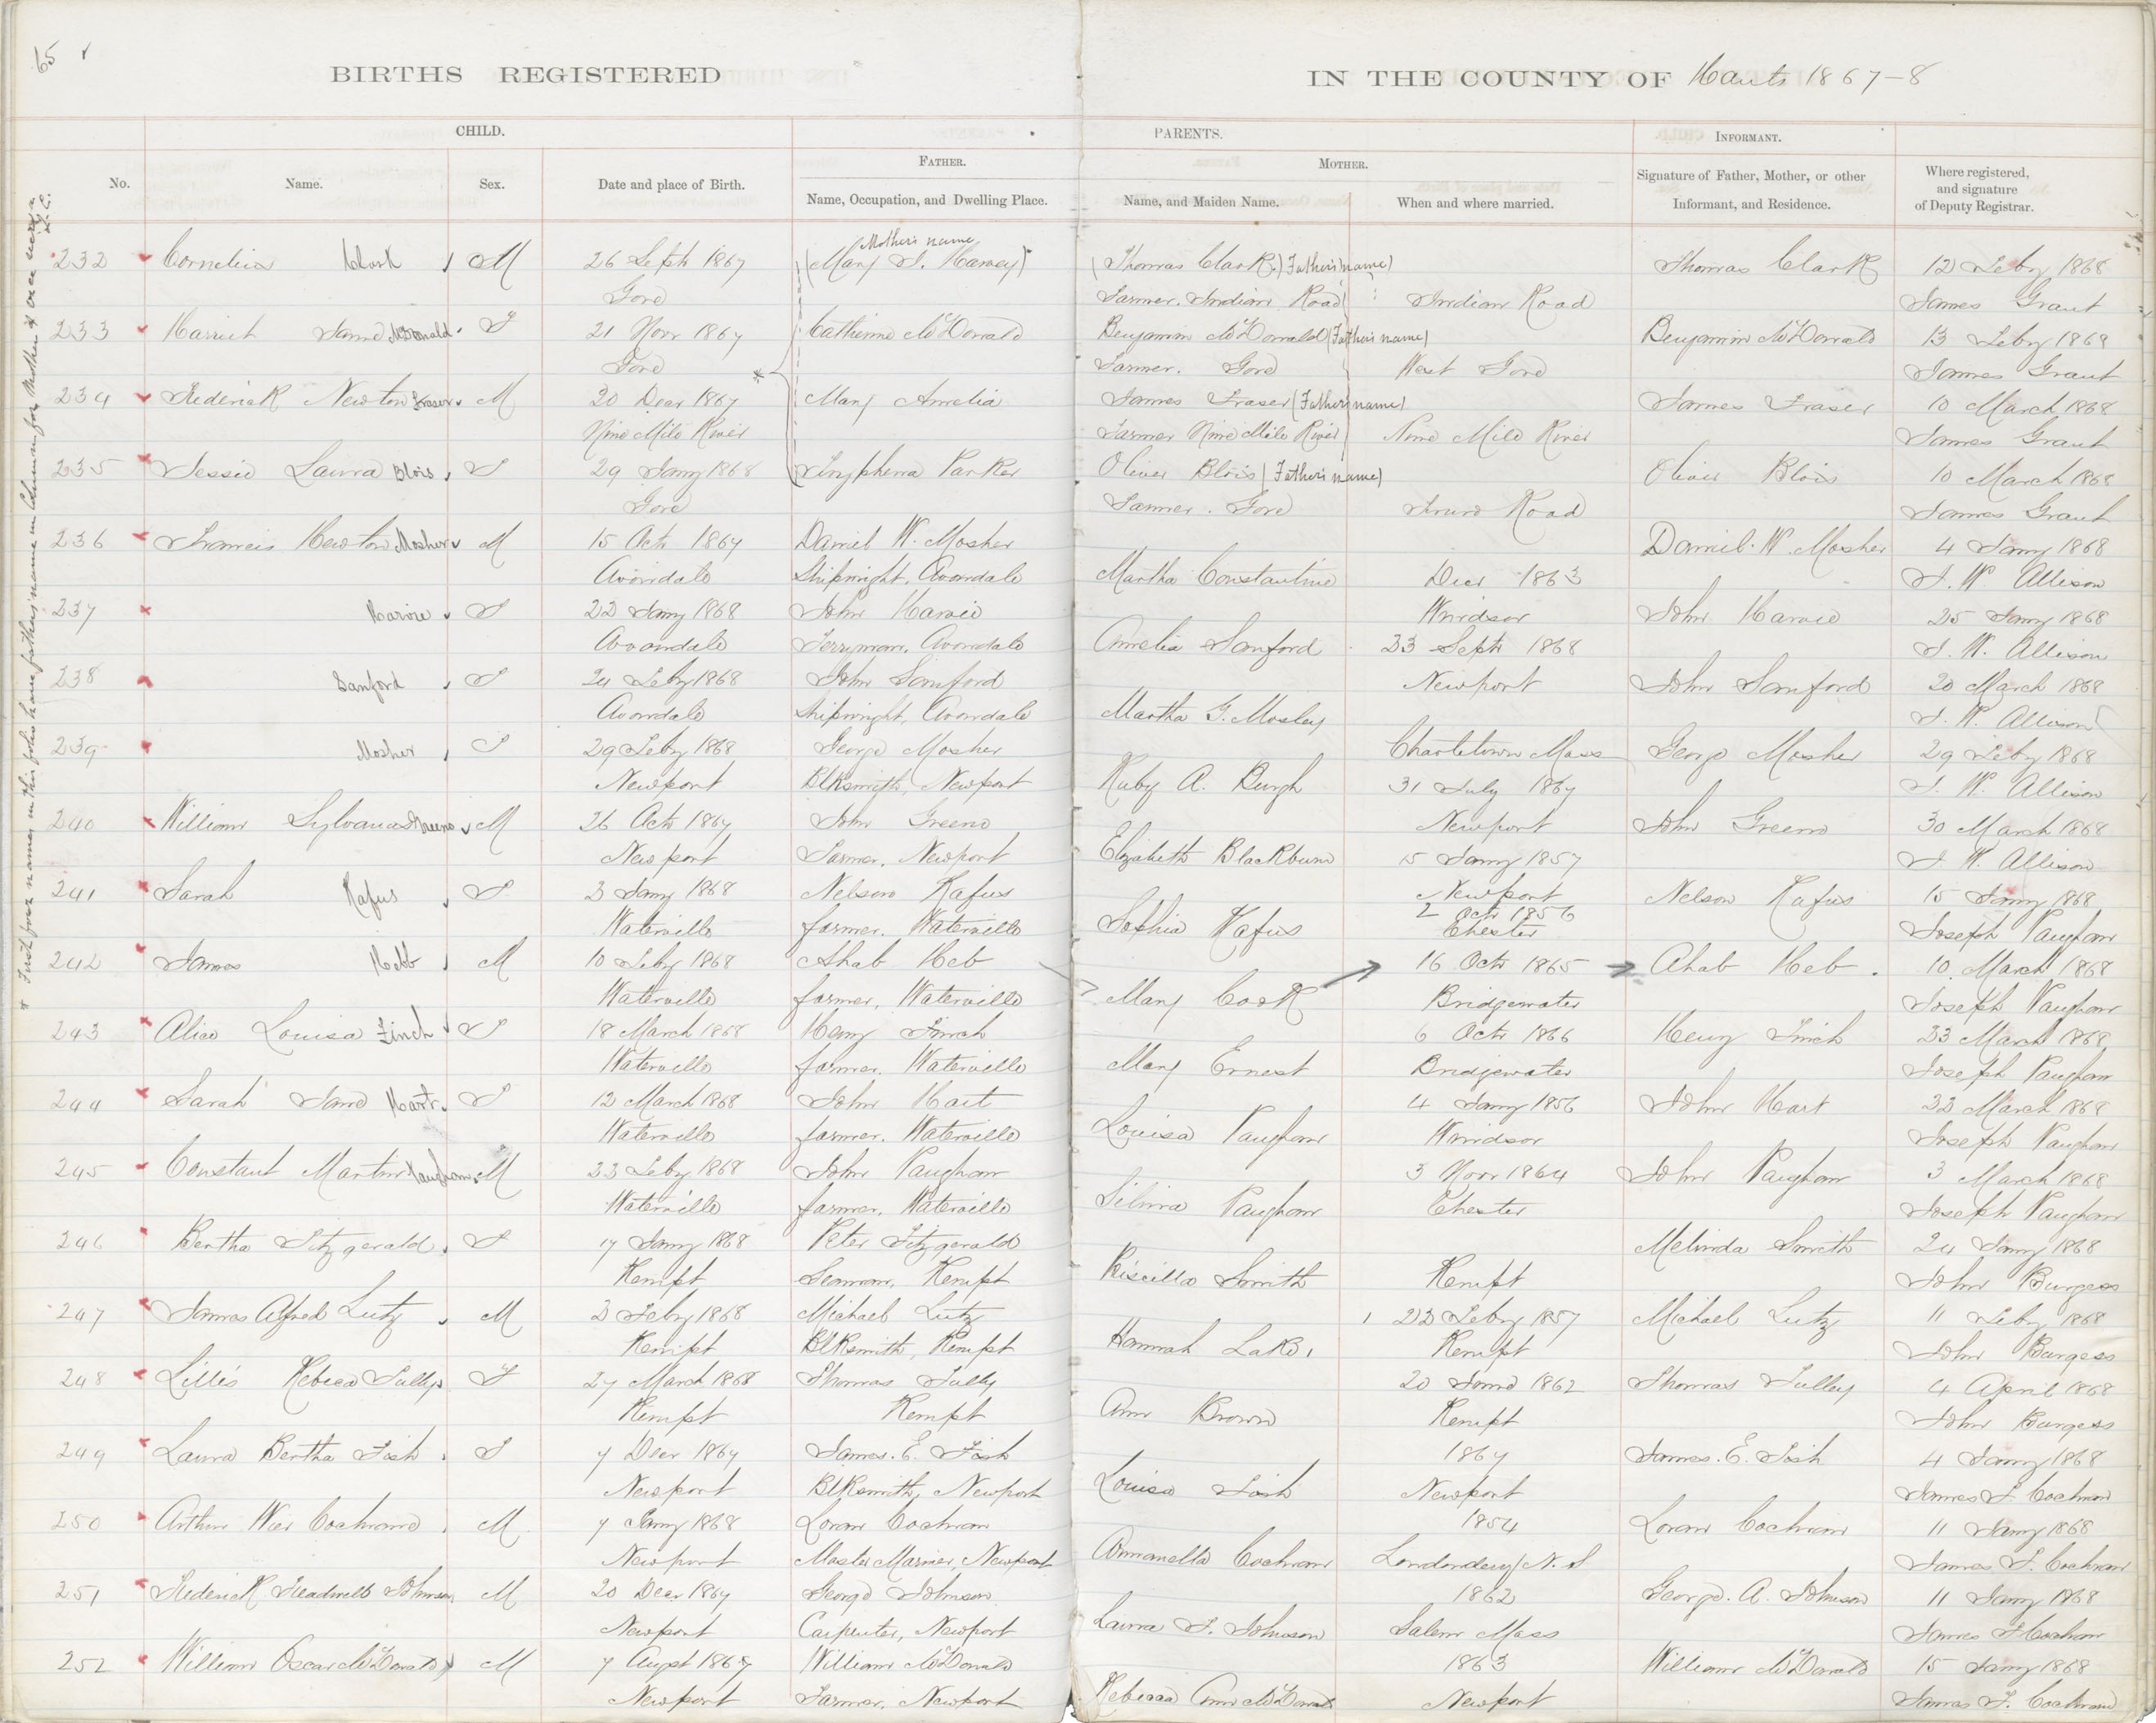 65
BIRTHS REGISTERED IN THE COUNTY OF Hants 1867-8
CHILD. PARENTS. INFORMANT.
FATHER. MOTHER.
No. Name. Sex. Date and place of Birth. Name, Occupation, and Dwelling Place. Name, and Maiden Name. When and where married. Signature of Father, Mother, or other Informant, and Residence. Where registered, and signature of Deputy Registrar.
Mother's name
232 Cornelius Clark M 26 Septr 1867 (Mary J. Harvey) (Thomas Clark) (Father's name) Thomas Clark 12 Feby 1868
Gore Farmer. Indian Road Indian Road James Grant
233 Harriet Jane McDonald F 21 Novr 1867 Catherine McDonald Benjamin McDonald (Father's name) Benjamin McDonald 13 Feby 1868
Gore Farmer. Gore West Gore James Grant
234 Frederick Newton Fraser M 20 Decr 1867 Mary Amelia James Fraser (Father's name) James Fraser 10 March 1868
Nine Mile River Farmer Nine Mile River Nine Mile River James Grant
235 Jessie Laura Blois F 29 Jany 1868 Tryphena Parker Oliver Blois (Father's name) Oliver Blois 10 March 1868
Gore Farmer. Gore Truro Road James Grant
236 Francis Newton Mosher M 15 Octr 1867 Daniel W. Mosher Daniel. W. Mosher 4 Jany 1868
Avondale Shipwright, Avondale Martha Constantine Decr 1863 J. W. Allison
237 Harvie F 22 Jany 1868 John Harvie Windsor John Harvie 25 Jany 1868
Avondale Ferryman, Avondale Amelia Sanford 23 Septr 1868 J. W. Allison
238 Sanford F 24 Feby 1868 John Sanford Newport John Sanford 20 March 1868
Avondale Shipwright, Avondale Martha G. Mosley J. W. Allison
239 Mosher F 29 Feby 1868 George Mosher Charletown Mass George Mosher 29 Feby 1868
Newport Blksmith, Newport Ruby A. Burgh 31 July 1867 J. W. Allison
240 William Sylvanus Greeno M 26 Octr 1867 John Greeno Newport John Greeno 30 March 1868
Newport Farmer, Newport Elizabeth Blackburn 15 Jany 1857 J. W. Allison
241 Sarah Rafus F 3 Jany 1868 Nelson Rafus Newport Nelson Rafus 15 Jany 1868
Waterville farmer. Waterville Sophia Rafus 2 Octr 1856 Chester Joseph Vaughan
242 James Hebb M 10 Feby 1868 Ahab Heb 16 Octr 1865 Ahab Heb. 10 March 1868
Waterville farmer, Waterville Mary Cook Bridgewater Joseph Vaughan
243 Alice Louisa Finch F 18 March 1868 Henry Finch 6 Octr 1866 Henry Finch 23 March 1868
Waterville farmer. Waterville Mary Ernest Bridgewater Joseph Vaughan
244 Sarah Jane Hart F 12 March 1868 John Hart 4 Jany 1856 John Hart 23 March 1868
Waterville farmer. Waterville Louisa Vaughan Windsor Joseph Vaughan
245 Constant Martin Vaughan M 23 Feby 1868 John Vaughan 3 Novr 1864 John Vaughan 3 March 1868
Waterville farmer. Waterville Vaughan Chester Joseph Vaughan
246 Bertha Fitzgerald F 17 Jany 1868 Peter Fitzgerald Melinda Smith 24 Jany 1868
Kempt Seaman, Kempt Priscilla Smith Kempt John Burgess
247 James Alfred Lutz M 3 Feby 1868 Michael Lutz 23 Feby 1857 Michael Lutz 11 Feby 1868
Kempt Blksmith, Kempt Hannah Lake Kempt John Burgess
248 Lillis Rebecca Tully F 27 March 1868 Thomas Tully 20 June 1862 Thomas Tulley 4 April 1868
Kempt Kempt Ann Brown Kempt John Burgess
249 Laura Bertha Fish F 7 Decr 1867 James. E. Fish 1867 James. E. Fish 4 Jany 1868
Newport Blksmith, Newport Louisa Fish Newport James F. Cochran
250 Arthur Wier Cochrane M 7 Jany 1868 Loran Cochran 1854 Loran Cochran 11 Jany 1868
Newport Master Mariner, Newport Annanella Cochran Londonderry N. S James F. Cochran
251 Frederick Treadwell Johnson M 20 Decr 1867 George Johnson 1862 George. A. Johnson 11 Jany 1868
Newport Carpenter, Newport Laura F. Johnson Salem Mass James F Cochran
252 William Oscar McDonald M 7 Augst 1867 William McDonald 1863 William McDonald 15 Jany 1868
Newport Farmer, Newport Rebecca Ann McDonald Newport James F. Cochran
* First four names in this folio have father's name in Column for Mother & vice versa